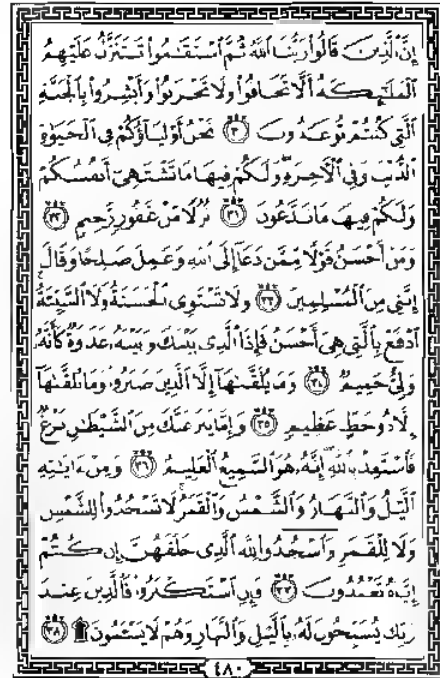 إِنَّ ٱلَّذِينَ قَالُوا۟ رَبُّنَا ٱللَّهُ ثُمَّ ٱسْتَقَـٰمُوا۟ تَتَنَزَّلُ عَلَيْهِمُ
ٱلْمَلَـٰٓئِكَةُ أَلَّا تَخَافُوا۟ وَلَا تَحْزَنُوا۟ وَأَبْشِرُوا۟ بِٱلْجَنَّةِ
ٱلَّتِى كُنتُمْ تُوعَدُونَ ٣٠ نَحْنُ أَوْلِيَآؤُكُمْ فِى ٱلْحَيَوٰةِ
ٱلدُّنْيَا وَفِى ٱلْـَٔاخِرَةِ وَلَكُمْ فِيهَا مَا تَشْتَهِىٓ أَنفُسُكُمْ
وَلَكُمْ فِيهَا مَا تَدَّعُونَ ٣١ نُزُلًا مِّنْ غَفُورٍ رَّحِيمٍ ٣٢
وَمَنْ أَحْسَنُ قَوْلًا مِّمَّن دَعَآ إِلَى ٱللَّهِ وَعَمِلَ صَـٰلِحًا وَقَالَ
إِنَّنِى مِنَ ٱلْمُسْلِمِينَ ٣٣ وَلَا تَسْتَوِى ٱلْحَسَنَةُ وَلَا ٱلسَّيِّئَةُ
ٱدْفَعْ بِٱلَّتِى هِىَ أَحْسَنُ فَإِذَا ٱلَّذِى بَيْنَكَ وَبَيْنَهُۥ عَدَٰوَةٌ كَأَنَّهُۥ
وَلِىٌّ حَمِيمٌ ٣٤ وَمَا يُلَقَّىٰهَآ إِلَّا ٱلَّذِينَ صَبَرُوا۟ وَمَا يُلَقَّىٰهَآ
إِلَّا ذُو حَظٍّ عَظِيمٍ ٣٥ وَإِمَّا يَنزَغَنَّكَ مِنَ ٱلشَّيْطَـٰنِ نَزْغٌ
فَٱسْتَعِذْ بِٱللَّهِ إِنَّهُۥ هُوَ ٱلسَّمِيعُ ٱلْعَلِيمُ ٣٦ وَمِنْ ءَايَـٰتِهِ
ٱلَّيْلُ وَٱلنَّهَارُ وَٱلشَّمْسُ وَٱلْقَمَرُ لَا تَسْجُدُوا۟ لِلشَّمْسِ
وَلَا لِلْقَمَرِ وَٱسْجُدُوا۟ لِلَّهِ ٱلَّذِى خَلَقَهُنَّ إِن كُنتُمْ
إِيَّاهُ تَعْبُدُونَ ٣٧ فَإِنِ ٱسْتَكْبَرُوا۟ فَٱلَّذِينَ عِندَ
رَبِّكَ يُسَبِّحُونَ لَهُۥ بِٱلَّيْلِ وَٱلنَّهَارِ وَهُمْ لَا يَسْـَٔمُونَ ۩ ٣٨
٤٨٠